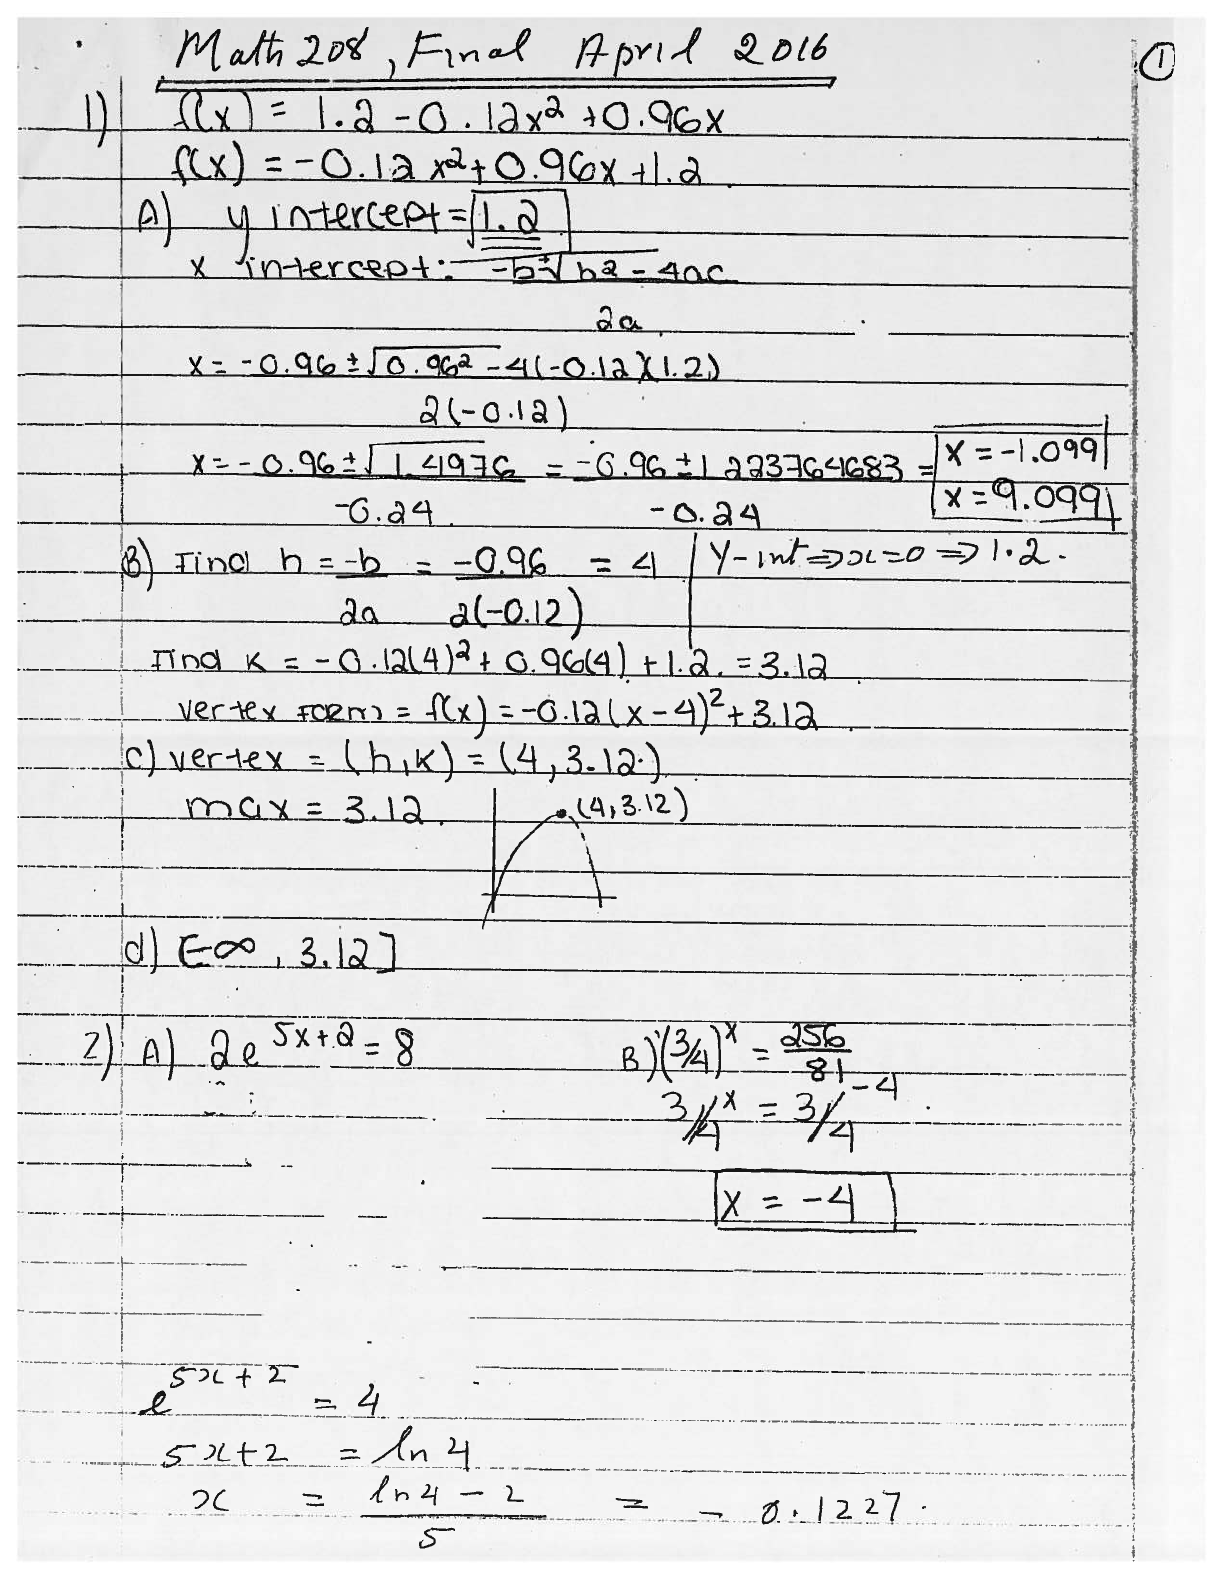 Math 208, Final April 2016
①
1) f(x) = 1.2 - 0.12x² + 0.96x
f(x) = -0.12x² + 0.96x + 1.2
A) y intercept = 1.2
x intercept: -b ± √b² - 4ac
2a
x = -0.96 ± √0.96² - 4(-0.12)(1.2)
2(-0.12)
x = -0.96 ± √1.4976 = -0.96 ± 1.2237764683 = x = -1.099
x = 9.099
-0.24 -0.24
B) Find h = -b = -0.96 = 4 Y-int ⇒ x=0 ⇒ 1.2.
2a 2(-0.12)
Find k = -0.12(4)² + 0.96(4) + 1.2. = 3.12
vertex form = f(x) = -0.12(x-4)² + 3.12
c) vertex = (h,k) = (4, 3.12)
max = 3.12. (4, 3.12)
d) [-∞, 3.12]
2) A) 2e^{5x+2} = 8 B) (3/4)^x = 256
81
3/4^x = 3/4^{-4}
x = -4
e^{5x+2} = 4
5x+2 = ln 4
x = ln4 - 2 = - 0.1227.
5